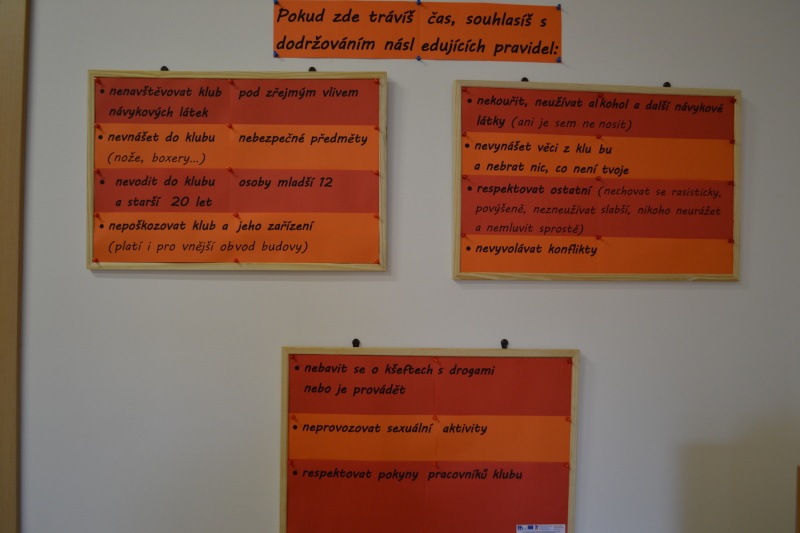 Pokud zde trávíš čas, souhlasíš s
dodržováním násl edujících pravidel:
• nenavštěvovat klub pod zřejmým vlivem
návykových látek
• nevnášet do klubu nebezpečné předměty
(nože, boxery...)
• nevodit do klubu osoby mladší 12
a starší 20 let
• nepoškozovat klub a jeho zařízení
(platí i pro vnější obvod budovy)
• nekouřit, neužívat alkohol a další návykové
látky (ani je sem ne nosit)
• nevynášet věci z klu bu
a nebrat nic, co není tvoje
• respektovat ostatní (nechovat se rasisticky,
povýšeně, nezneužívat slabší, nikoho neurážet
a nemluvit sprostě)
• nevyvolávat konflikty
• nebavit se o kšeftech s drogami
nebo je provádět
• neprovozovat sexuální aktivity
• respektovat pokyny pracovníků klubu